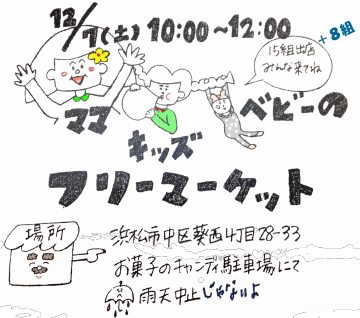 12/7(土) 10:00~12:00
+8組
15組出店
みんな来てね
ママ
キッズ
ベビーの
フリーマーケット
場所
浜松市中区葵西4丁目28-33
お菓子のキャンディ駐車場にて
雨天中止じゃないよ